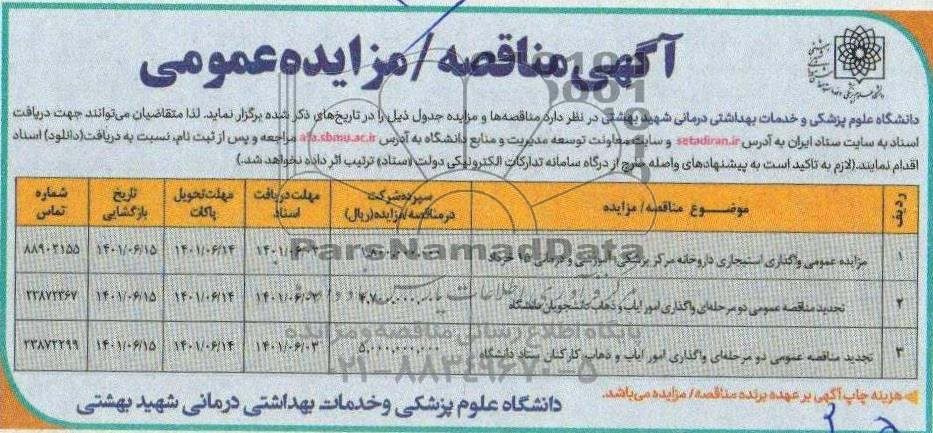 آگهی مناقصه/مزایده عمومی
دانشگاه علوم پزشکی و خدمات بهداشتی درمانی شهید بهشتی در نظر دارد مناقصه‌ها و مزایده جدول ذیل را در تاریخ‌های ذکر شده برگزار نماید. لذا متقاضیان می‌توانند جهت دریافت
اسناد به سایت ستاد ایران به آدرس setadiran.ir و سایت معاونت توسعه مدیریت و منابع دانشگاه به آدرس afa.sbmu.ac.ir مراجعه و پس از ثبت نام، نسبت به دریافت(دانلود) اسناد
اقدام نمایند.(لازم به تاکید است به پیشنهادهای واصله خارج از درگاه سامانه تدارکات الکترونیکی دولت (ستاد) ترتیب اثر داده نخواهد شد.)
ردیف موضوع مناقصه/ مزایده سپرده شرکت در مناقصه/مزایده(ریال) مهلت دریافت اسناد مهلت تحویل پاکات تاریخ بازگشایی شماره تماس
۱ مزایده عمومی واگذاری استیجاری داروخانه مرکز پزشکی، آموزشی و درمانی ۱۵ خرداد ۱۴۰۱/۰۶/۰۳ ۱۴۰۱/۰۶/۱۴ ۱۴۰۱/۰۶/۱۵ ۸۸۹۰۲۱۵۵
۲ تجدید مناقصه عمومی دو مرحله‌ای واگذاری امور ایاب و ذهاب دانشجویان دانشگاه ۱۴۰۱/۰۶/۰۳ ۱۴۰۱/۰۶/۱۴ ۱۴۰۱/۰۶/۱۵ ۲۳۸۷۲۳۶۷
۳ تجدید مناقصه عمومی دو مرحله‌ای واگذاری امور ایاب و ذهاب کارکنان ستاد دانشگاه ۵,۰۰۰,۰۰۰,۰۰۰ ۱۴۰۱/۰۶/۰۳ ۱۴۰۱/۰۶/۱۴ ۱۴۰۱/۰۶/۱۵ ۲۳۸۷۲۲۹۹
ParsNamadData
پایگاه اطلاع رسانی مناقصه و مزایده
۰۲۱-۸۸۳۴۹۶۷۰-۵
هزینه چاپ آگهی بر عهده برنده مناقصه/ مزایده می‌باشد.
دانشگاه علوم پزشکی و خدمات بهداشتی درمانی شهید بهشتی